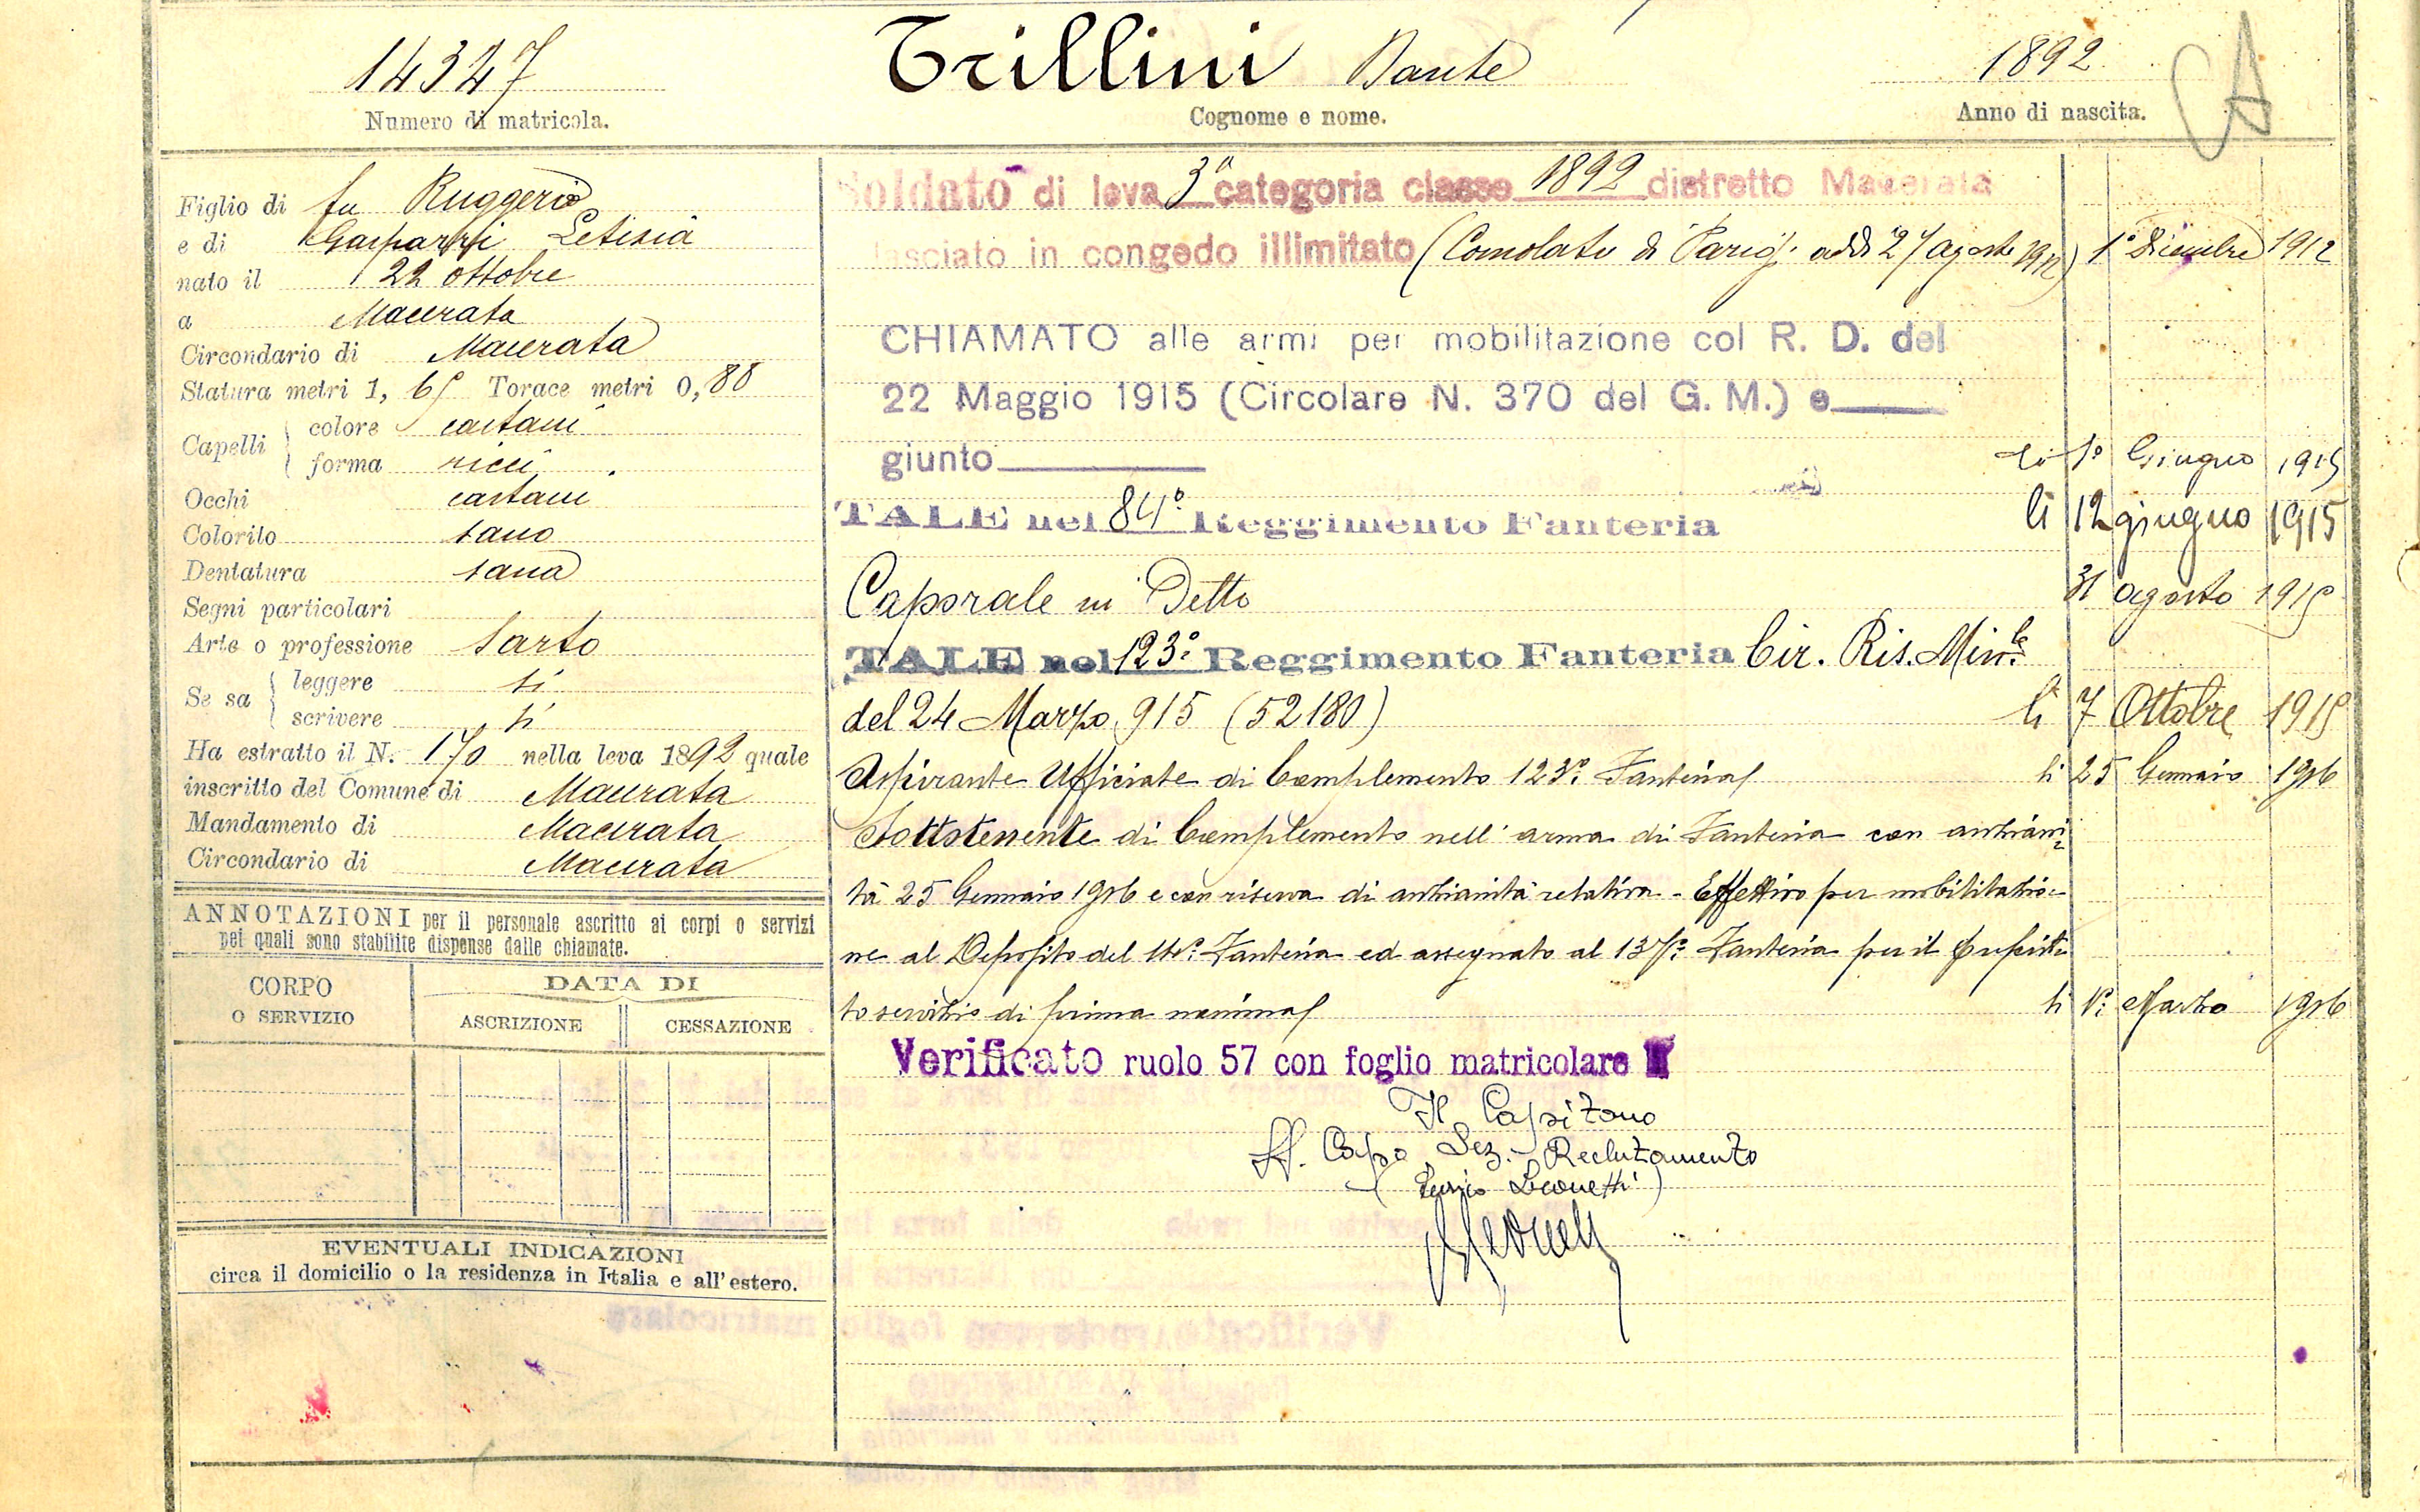 14347 Trillini Dante 1892 A
Numero di matricola. Cognome e nome. Anno di nascita.
Figlio di fu Ruggero
e di Gasparri Letizia
nato il 22 ottobre
a Macerata
Circondario di Macerata
Statura metri 1, 65 Torace metri 0, 88
Capelli colore castani
forma ricci
Occhi castani
Colorito sano
Dentatura sana
Segni particolari
Arte o professione Sarto
Se sa leggere si
scrivere si
Ha estratto il N. 170 nella leva 1892 quale
inscritto del Comune di Macerata
Mandamento di Macerata
Circondario di Macerata
ANNOTAZIONI per il personale ascritto ai corpi o servizi
pei quali sono stabilite dispense dalle chiamate.
CORPO O SERVIZIO
DATA DI
ASCRIZIONE CESSAZIONE
EVENTUALI INDICAZIONI
circa il domicilio o la residenza in Italia e all'estero.
Soldato di leva 3ª categoria classe 1892 distretto Macerata
lasciato in congedo illimitato (Consolato di Parigi addì 27 agosto 1912) 1° Dicembre 1912
CHIAMATO alle armi per mobilitazione col R. D. del
22 Maggio 1915 (Circolare N. 370 del G. M.) e
giunto li 1° Giugno 1915
TALE nel 84° Reggimento Fanteria li 12 giugno 1915
Caporale in Detto 31 agosto 1915
TALE nel 123° Reggimento Fanteria Cir. Ris. Min.le
del 24 Marzo 915 (52180) li 7 Ottobre 1915
Aspirante Ufficiale di Complemento 123° Fanteria li 25 Gennaio 1916
Sottotenente di Complemento nell'arma di Fanteria con anziani
tà 25 Gennaio 1916 e con riserva di anzianità relativa - Effettivo per mobilitazio-
ne al Deposito del Fanteria ed assegnato al 137° Fanteria per il
to servizio di prima nomina li 1° Marzo 1916
Verificato ruolo 57 con foglio matricolare
Il Capitano
ff. Capo Sez. Reclutamento
Leonetti)